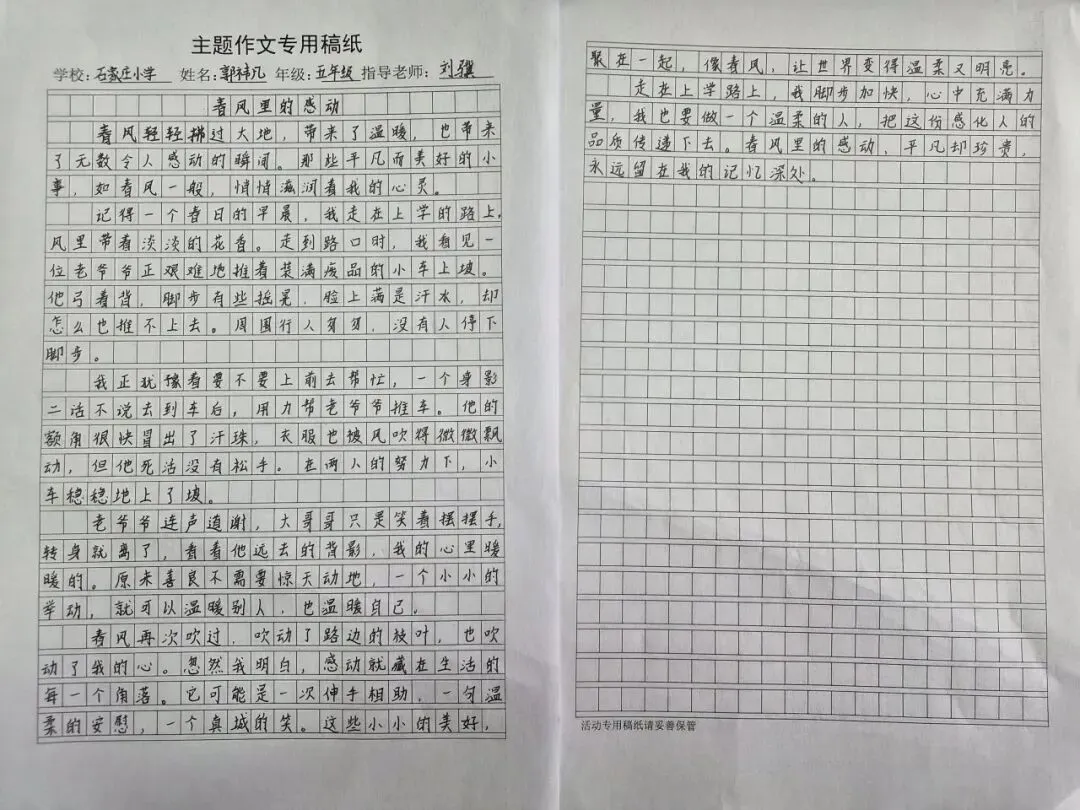 主题作文专用稿纸
学校：石家庄小学 姓名：郭祎凡 年级：五年级 指导老师：刘骥
春风里的感动
春风轻轻拂过大地，带来了温暖，也带来
了无数令人感动的瞬间。那些平凡而美好的小
事，如春风一般，悄悄滋润着我的心灵。
记得一个春日的早晨，我走在上学的路上，
风里带着淡淡的花香。走到路口时，我看见一
位老爷爷正艰难地推着装满废品的小车上坡。
他弓着背，脚步有些摇晃，脸上满是汗水，却
怎么也推不上去。周围行人匆匆，没有人停下
脚步。
我正犹豫着要不要上前去帮忙，一个身影
二话不说去到车后，用力帮老爷爷推车。他的
额角很快冒出了汗珠，衣服也被风吹得微微飘
动，但他死活没有松手。在两人的努力下，小
车稳稳地上了坡。
老爷爷连声道谢，大哥哥只是笑着摆摆手，
转身就离了，看着他远去的背影，我的心里暖
暖的。原来善良不需要惊天动地，一个小小的
举动，就可以温暖别人，也温暖自己。
春风再次吹过，吹动了路边的枝叶，也吹
动了我的心。忽然我明白，感动就藏在生活的
每一个角落。它可能是一次伸手相助，一句温
柔的安慰，一个真诚的笑。这些小小的美好，
聚在一起，像春风，让世界变得温柔又明亮。
走在上学路上，我脚步加快，心中充满力
量，我也要做一个温柔的人，把这份感化人的
品质传递下去。春风里的感动，平凡却珍贵，
永远留在我的记忆深处。
活动专用稿纸请妥善保管